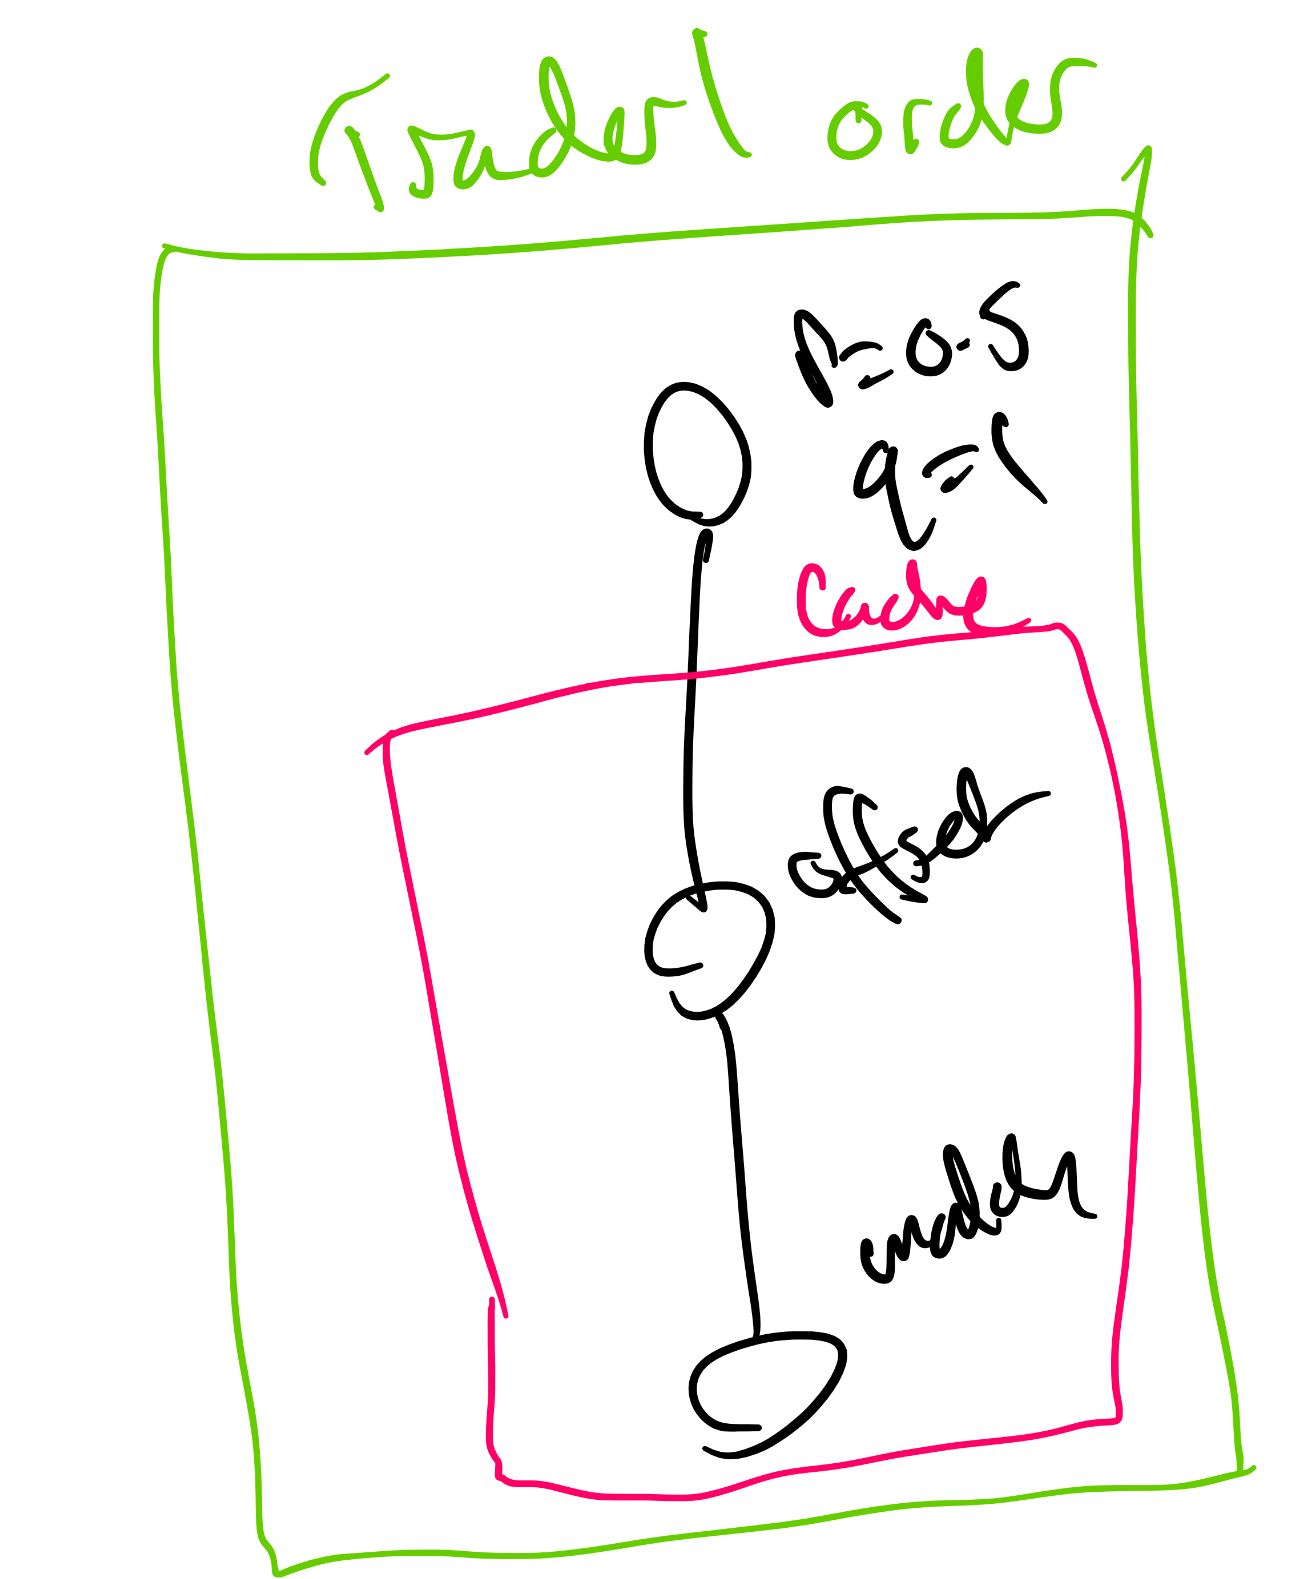 Trader 1 order
P=0.5
q=1
Cache
offset
match